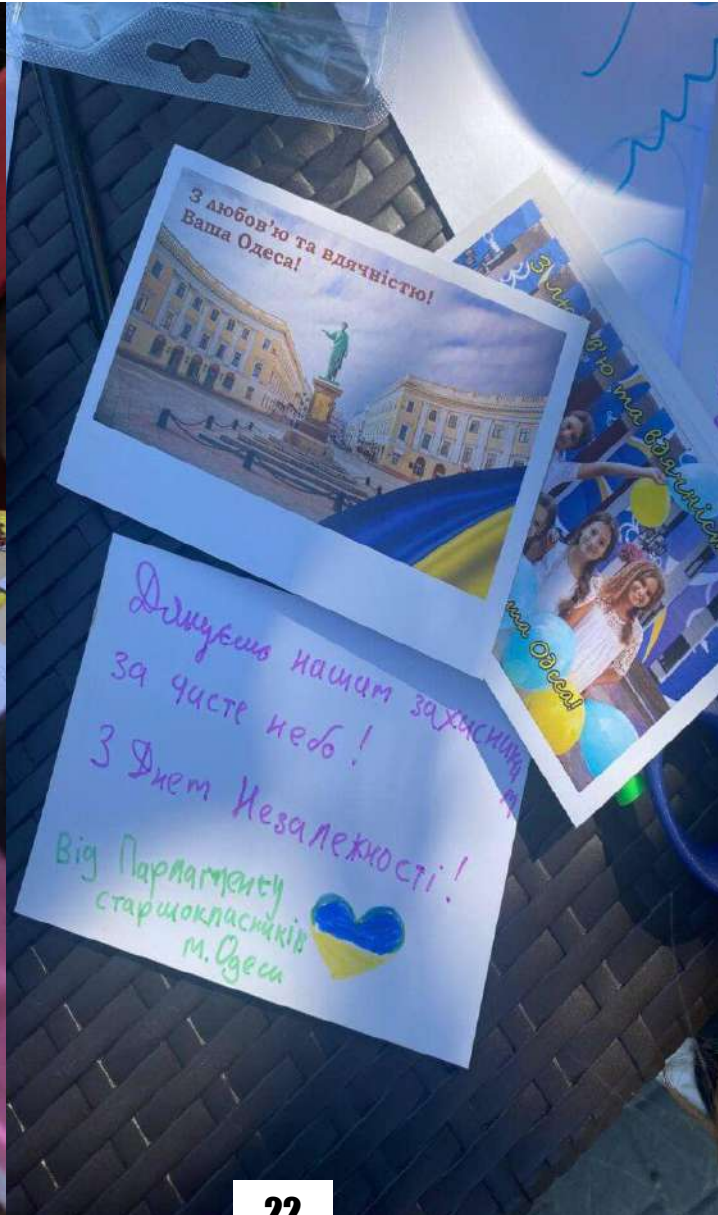 З любов'ю та вдячністю!
Ваша Одеса!
З любов'ю та вдячніс
та Одеса!
Дякуємо нашим захисникам
за чисте небо!
З Днем Незалежності!
Від Парламенту
старшокласників
м. Одеси
22